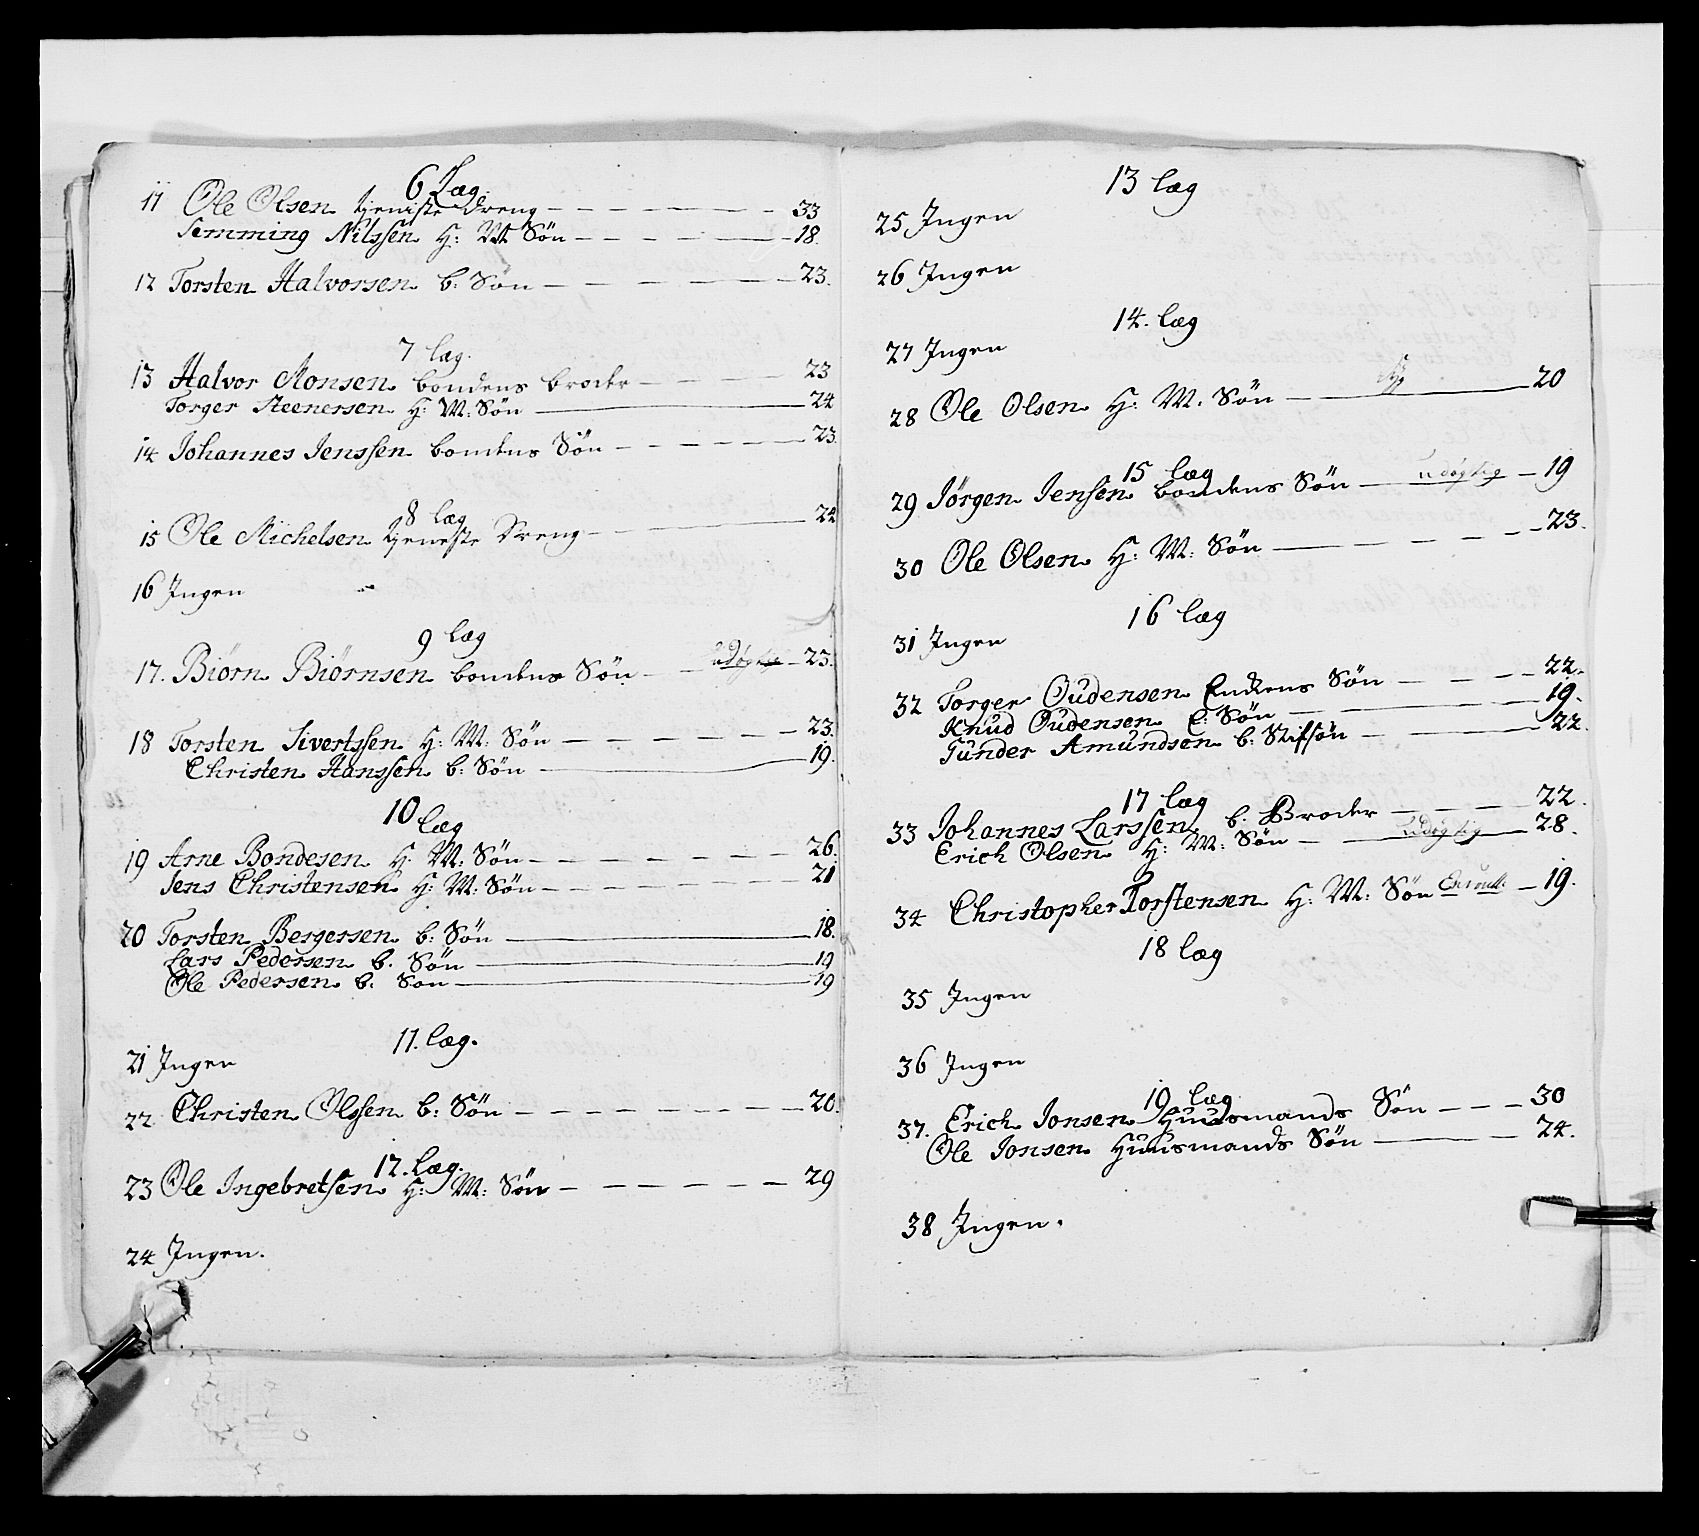 6 Læg.
11 Ole Olsen tjeniste Dreng — 33
Semming Nilssen H: M Søn — 18.
12 Torsten Halvorsen b: Søn — 23.
7 læg.
13 Halvor Monsen bondens broder — 23
Torger Steenersen H: M: Søn — 24
14 Johannes Jenssen bondens Søn — 23.
8 læg
15 Ole Michelsen tjeneste Dreng — 24
16 Ingen
9 læg
17. Biørn Biørnsen bondens Søn — udøgtig — 23.
18 Torsten Sivertssen H: M: Søn — 23.
Christen Hanssen b: Søn — 19.
10 læg
19 Arne Bondesen H: M: Søn — 26.
Jens Christensen H: M: Søn — 21
20 Torsten Bergersen b: Søn — 18.
Lars Pedersen b. Søn — 19
Ole Pedersen b. Søn — 19
11. læg.
21 Ingen
22 Christen Olssen b: Søn — 20.
12. læg.
23 Ole Ingebretsen H: M: Søn — 29
24 Ingen.
13 læg
25 Ingen
26 Ingen
14. læg
27 Ingen
28 Ole Olsen H: M. Søn — 20
15 læg
29 Jørgen Jensen bondens Søn — udøgtig — 19
30 Ole Olsen H: M: Søn — 23.
16 læg
31 Ingen
32 Torger Oudensen Enkens Søn — 22.
Knud Oudensen E: Søn — 19.
Gunder Amundsen b: Stifsøn — 22.
17 læg
33 Johannes Larssen b: Broder — 22.
Erich Olsen H: M: Søn — udøgtig — 28.
34 Christopher Torstensen H: M: Søn — 19.
18 læg
35 Ingen
36 Ingen
19 læg
37. Erich Jonsen Huusmands Søn — 30
Ole Jonsen Huusmands Søn — 24.
38 Ingen.